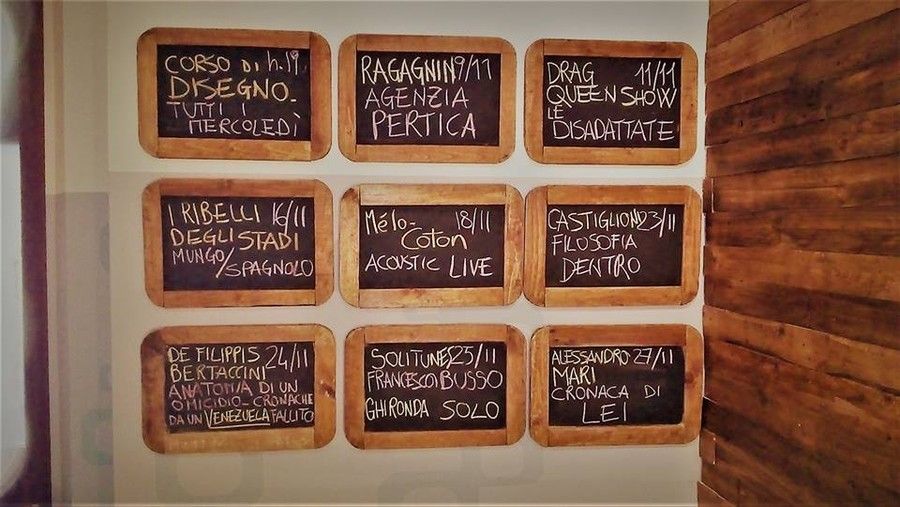 CORSO DI h.19
DISEGNO.
TUTTI I
MERCOLEDÌ
RAGAGNIN 9/11
AGENZIA
PERTICA
DRAG 11/11
QUEEN SHOW
LE
DISADATTATE
I RIBELLI 16/11
DEGLI STADI
MUNGO/SPAGNOLO
Mélo- 18/11
Coton
ACOUSTIC LIVE
CASTIGLIONI 23/11
FILOSOFIA
DENTRO
DE FILIPPIS 24/11
BERTACCINI
ANATOMIA DI UN
OMICIDIO - CRONACHE
DA UN VENEZUELA FALLITO
SOLITUNES 25/11
FRANCESCO BUSSO
GHIRONDA SOLO
ALESSANDRO 27/11
MARI
CRONACA DI
LEI